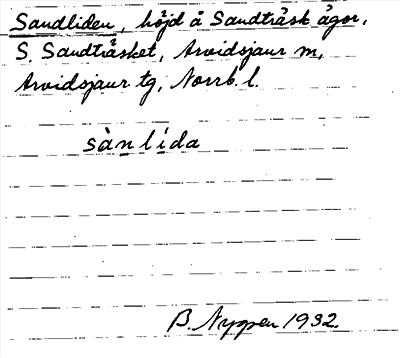 Sandliden, höjd å Sandträsk ägor,
S. Sandträsket, Arvidsjaur m,
Arvidsjaur tg, Norrb. l.
sànlída
B. Nyppen 1932.